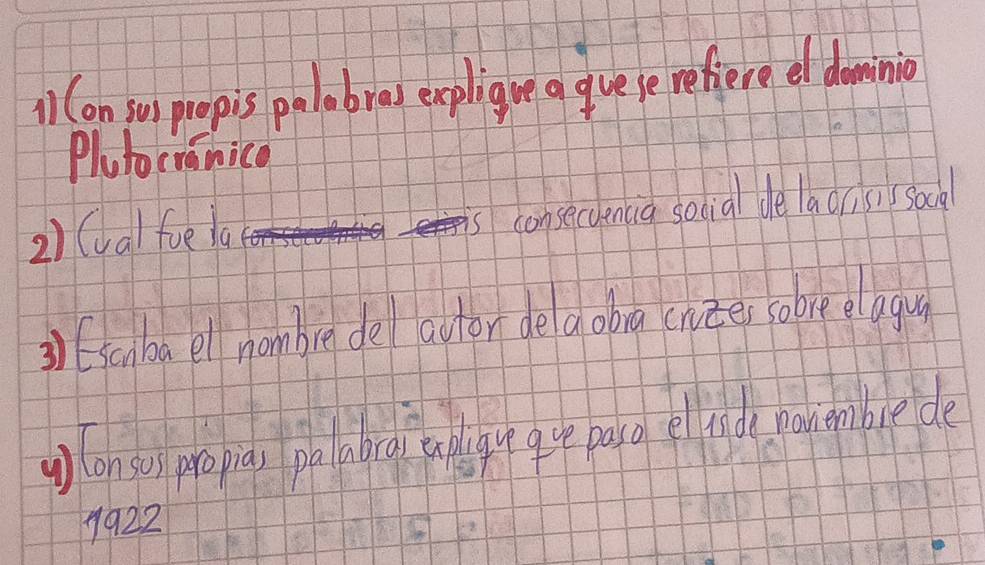 1) Con sus propis palabras explique a que se refiere el dominio
Plutocránico
2) Cual fue la is consecuencia social de la crisis social
3) Escriba el nombre del autor de la obra cruzes sobre el agua
4) Con sus propias palabras explique que paso el 15 de noviembre de
1922